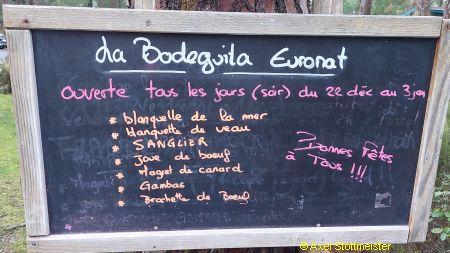 La Bodeguita Euronat
ouverte tous les jours (soir) du 22 déc au 3 jan
* blanquette de la mer
* blanquette de veau
* SANGLIER
* Joue de boeuf
* Magret de canard
* Gambas
* Brochette de Boeuf
Bonnes Fêtes
à Tous !!!
© Axel Stottmeister